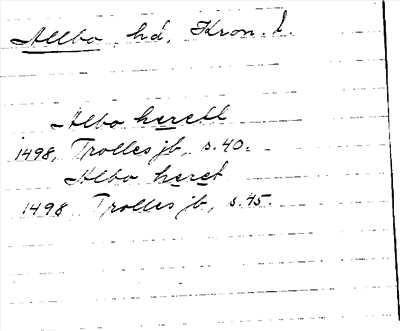 Allbo hd, Kron. l.
Albo herett
1498, Trolles jb, s. 40.
Albo heret
1498 Trolles jb, s. 45.